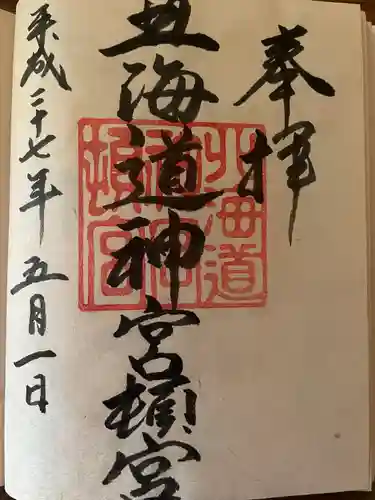 奉拝
北海道神宮頓宮
平成二十七年五月一日
北海道神宮頓宮